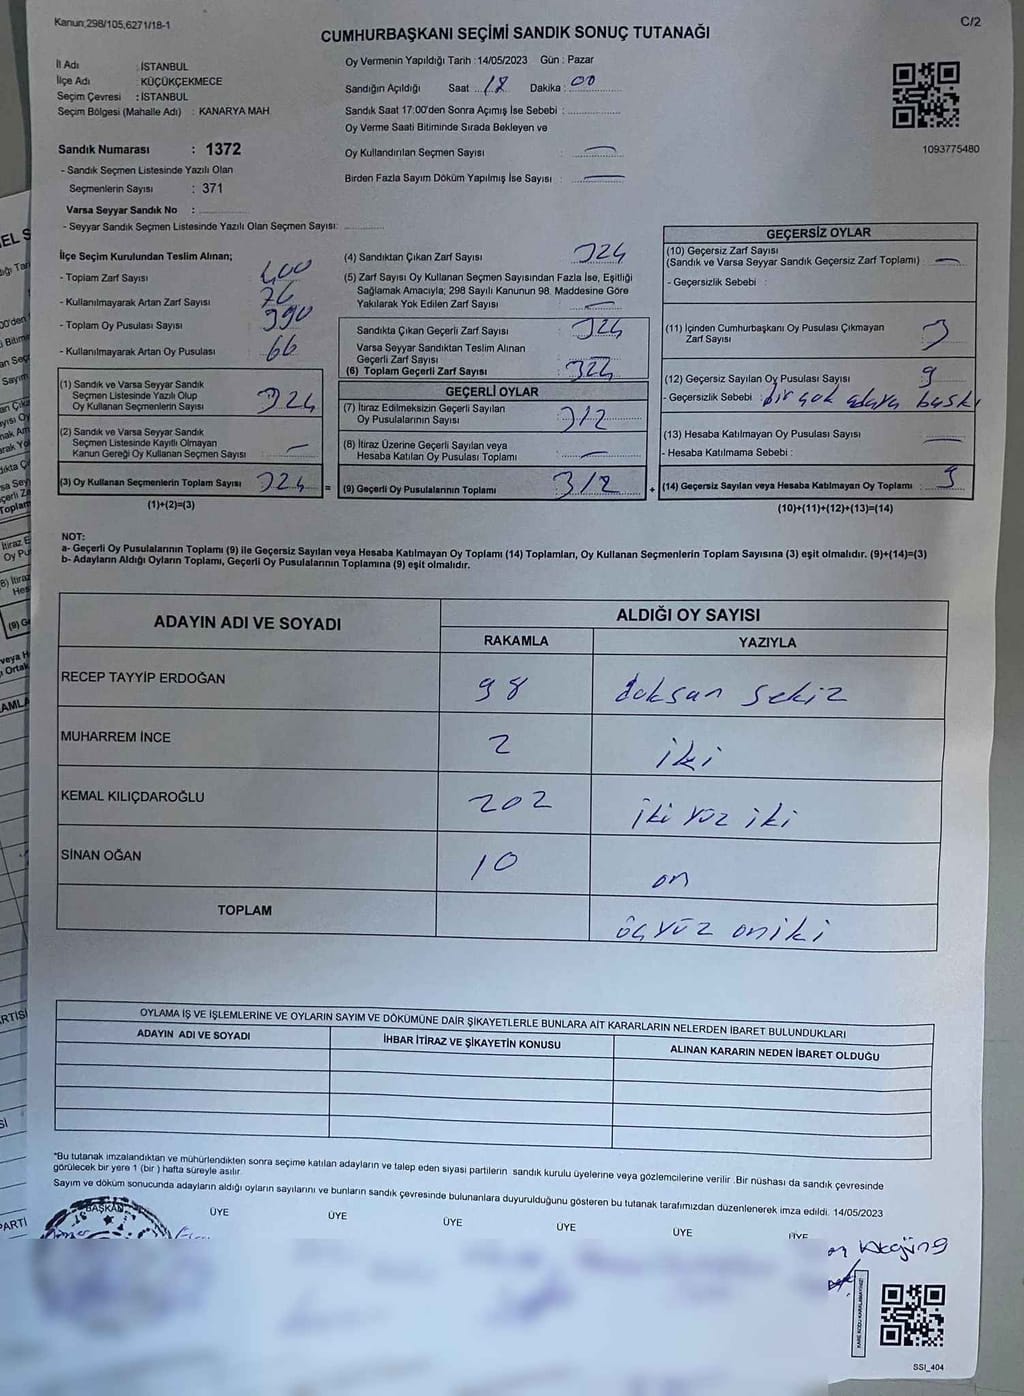 Kanun;298/105,6271/18-1
C/2
CUMHURBAŞKANI SEÇİMİ SANDIK SONUÇ TUTANAĞI
İl Adı : İSTANBUL
İlçe Adı : KÜÇÜKÇEKMECE
Seçim Çevresi : İSTANBUL
Seçim Bölgesi (Mahalle Adı) : KANARYA MAH
Oy Vermenin Yapıldığı Tarih : 14/05/2023 Gün : Pazar
Sandığın Açıldığı Saat : 18 Dakika : 00
Sandık Saat 17:00'den Sonra Açımış İse Sebebi :
Oy Verme Saati Bitiminde Sırada Bekleyen ve
Oy Kullandırılan Seçmen Sayısı : —
Birden Fazla Sayım Döküm Yapılmış İse Sayısı : —
1093775480
Sandık Numarası : 1372
- Sandık Seçmen Listesinde Yazılı Olan
Seçmenlerin Sayısı : 371
Varsa Seyyar Sandık No :
- Seyyar Sandık Seçmen Listesinde Yazılı Olan Seçmen Sayısı:
İlçe Seçim Kurulundan Teslim Alınan;
- Toplam Zarf Sayısı 400
- Kullanılmayarak Artan Zarf Sayısı 76
- Toplam Oy Pusulası Sayısı 390
- Kullanılmayarak Artan Oy Pusulası 66
(1) Sandık ve Varsa Seyyar Sandık
Seçmen Listesinde Yazılı Olup
Oy Kullanan Seçmenlerin Sayısı 324
(2) Sandık ve Varsa Seyyar Sandık
Seçmen Listesinde Kayıtlı Olmayan
Kanun Gereği Oy Kullanan Seçmen Sayısı —
(3) Oy Kullanan Seçmenlerin Toplam Sayısı 324 =
(1)+(2)=(3)
(4) Sandıktan Çıkan Zarf Sayısı 324
(5) Zarf Sayısı Oy Kullanan Seçmen Sayısından Fazla İse, Eşitliği
Sağlamak Amacıyla; 298 Sayılı Kanunun 98. Maddesine Göre
Yakılarak Yok Edilen Zarf Sayısı —
Sandıkta Çıkan Geçerli Zarf Sayısı 324
Varsa Seyyar Sandıktan Teslim Alınan
Geçerli Zarf Sayısı
(6) Toplam Geçerli Zarf Sayısı 324
GEÇERLİ OYLAR
(7) İtiraz Edilmeksizin Geçerli Sayılan
Oy Pusulalarının Sayısı 312
(8) İtiraz Üzerine Geçerli Sayılan veya
Hesaba Katılan Oy Pusulası Toplamı —
(9) Geçerli Oy Pusulalarının Toplamı 312 +
GEÇERSİZ OYLAR
(10) Geçersiz Zarf Sayısı
(Sandık ve Varsa Seyyar Sandık Geçersiz Zarf Toplamı) —
- Geçersizlik Sebebi :
(11) İçinden Cumhurbaşkanı Oy Pusulası Çıkmayan
Zarf Sayısı 3
(12) Geçersiz Sayılan Oy Pusulası Sayısı 9
- Geçersizlik Sebebi : bir çok adaya baskı
(13) Hesaba Katılmayan Oy Pusulası Sayısı —
- Hesaba Katılmama Sebebi :
(14) Geçersiz Sayılan veya Hesaba Katılmayan Oy Toplamı : 9
(10)+(11)+(12)+(13)=(14)
NOT:
a- Geçerli Oy Pusulalarının Toplamı (9) ile Geçersiz Sayılan veya Hesaba Katılmayan Oy Toplamı (14) Toplamları, Oy Kullanan Seçmenlerin Toplam Sayısına (3) eşit olmalıdır. (9)+(14)=(3)
b- Adayların Aldığı Oyların Toplamı, Geçerli Oy Pusulalarının Toplamına (9) eşit olmalıdır.
ADAYIN ADI VE SOYADI
ALDIĞI OY SAYISI
RAKAMLA YAZIYLA
RECEP TAYYİP ERDOĞAN 98 doksan sekiz
MUHARREM İNCE 2 iki
KEMAL KILIÇDAROĞLU 202 iki yüz iki
SİNAN OĞAN 10 on
TOPLAM üç yüz oniki
OYLAMA İŞ VE İŞLEMLERİNE VE OYLARIN SAYIM VE DÖKÜMÜNE DAİR ŞİKAYETLERLE BUNLARA AİT KARARLARIN NELERDEN İBARET BULUNDUKLARI
ADAYIN ADI VE SOYADI İHBAR İTİRAZ VE ŞİKAYETİN KONUSU ALINAN KARARIN NEDEN İBARET OLDUĞU
*Bu tutanak imzalandıktan ve mühürlendikten sonra seçime katılan adayların ve talep eden siyasi partilerin sandık kurulu üyelerine veya gözlemcilerine verilir .Bir nüshası da sandık çevresinde
görülecek bir yere 1 (bir ) hafta süreyle asılır.
Sayım ve döküm sonucunda adayların aldığı oyların sayılarını ve bunların sandık çevresinde bulunanlara duyurulduğunu gösteren bu tutanak tarafımızdan düzenlenerek imza edildi. 14/05/2023
BAŞKAN ÜYE ÜYE ÜYE ÜYE ÜYE ÜYE
SSI_404